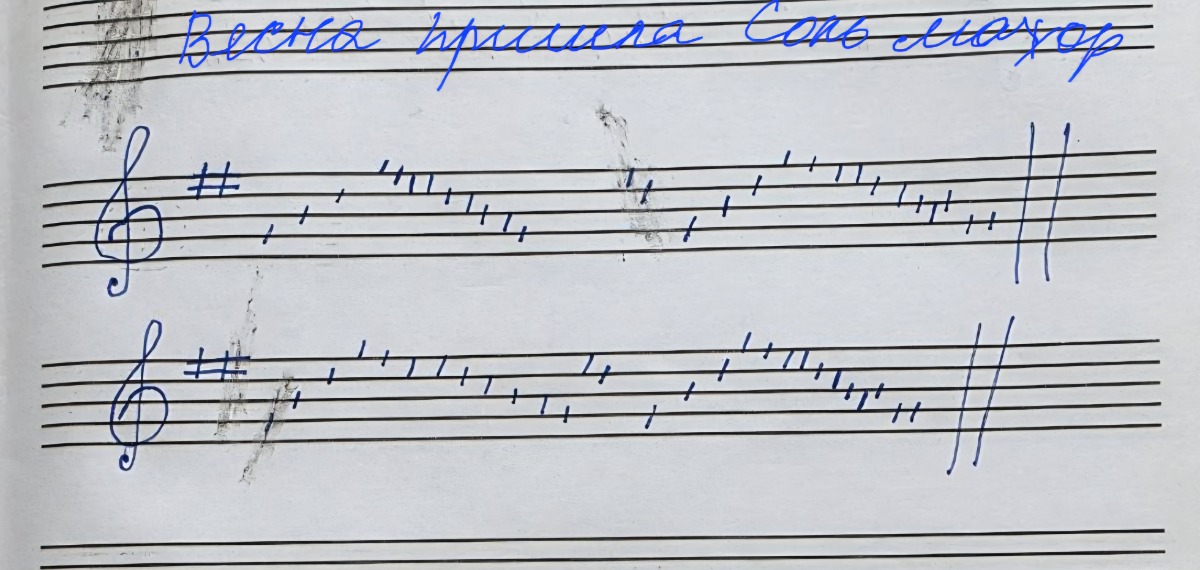 Весна пришла Соль мажор